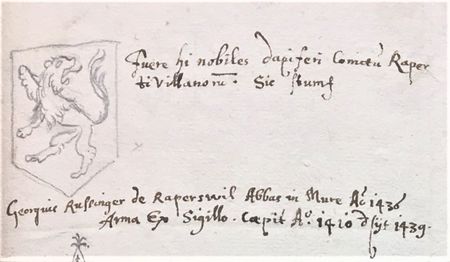 Fuere hi nobiles dapiferi Comitũ Raper
tivillanorũ. Sic Stumf
Georgius Russinger de Raperswil Abbas in Mure Aº 1436
Arma Ex Sigillo. Cœpit Aº. 1410 1439.